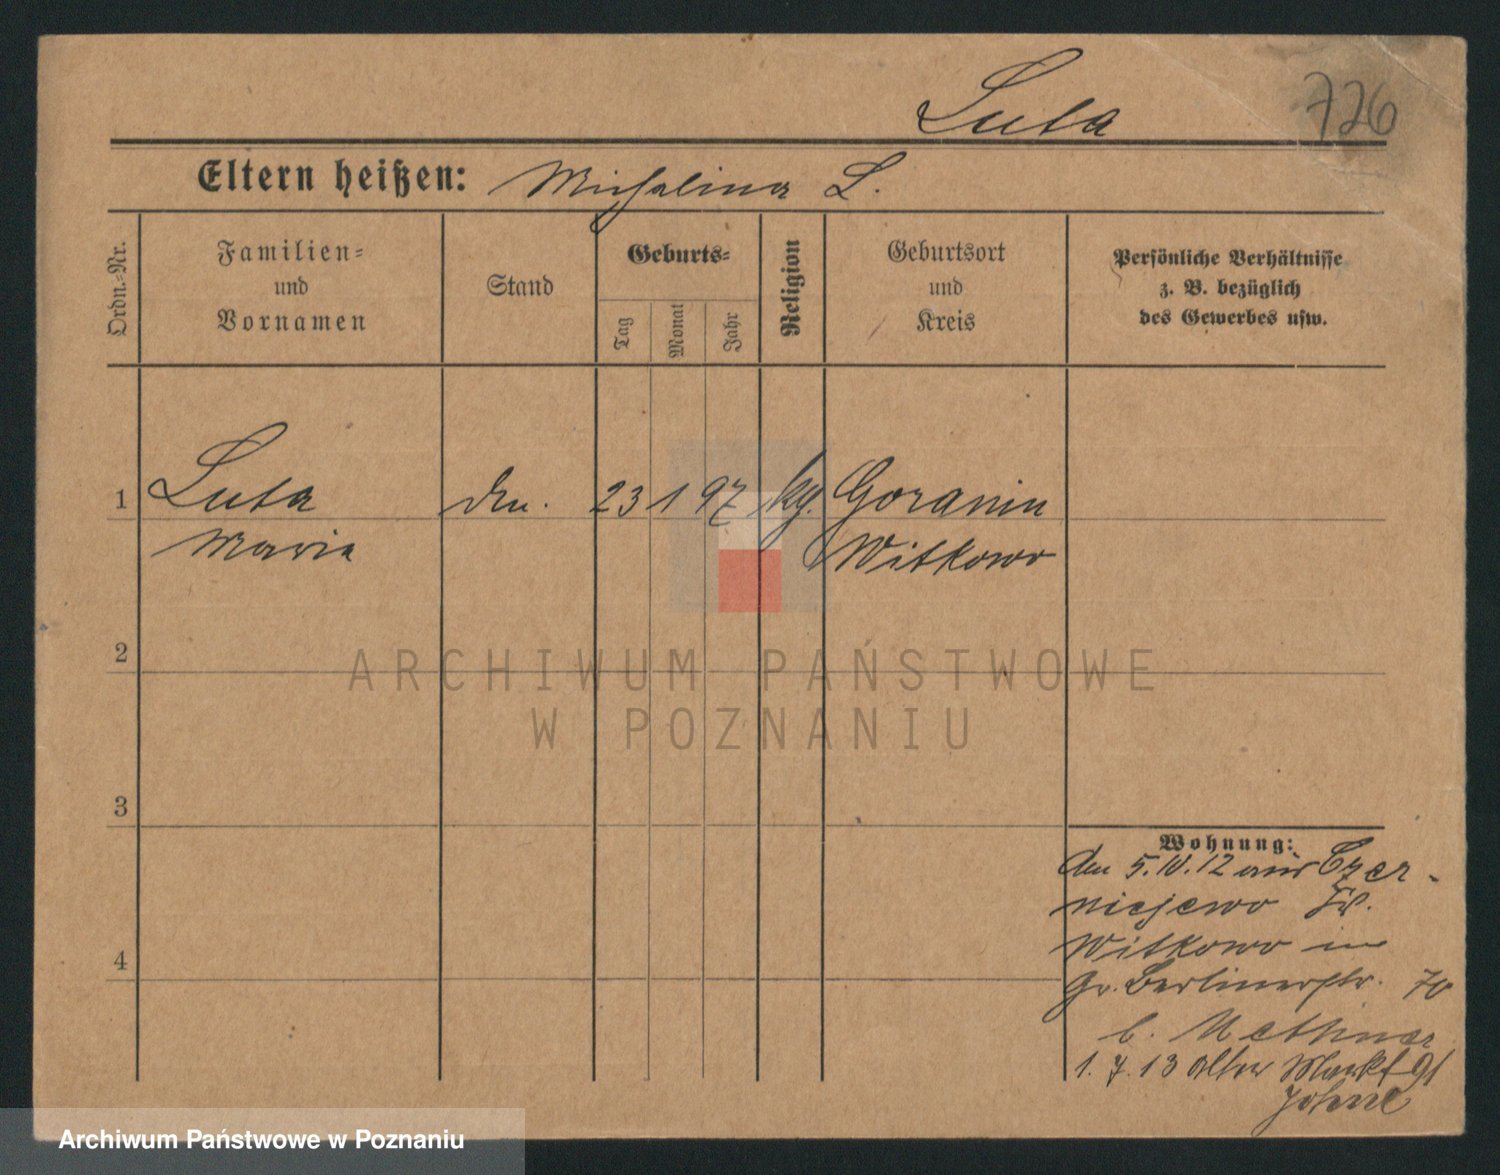 Luta
726
Eltern heißen: Michalina L.
Ordn.-Nr.
Familien-
und
Vornamen
Stand
Geburts-
Tag
Monat
Jahr
Religion
Geburtsort
und
Kreis
Persönliche Verhältnisse
z. B. bezüglich
des Gewerbes usw.
1
Luta
Maria
23 1 97
Goranin
Witkowo
2
3
4
Wohnung:
den 5. 10. 12 aus Czer-
niejewo Kr.
Witkowo in
Gr. Berlinerstr. 70
b.
1. 7. 13 Alter Markt 91
ARCHIWUM PAŃSTWOWE
W POZNANIU
Archiwum Państwowe w Poznaniu